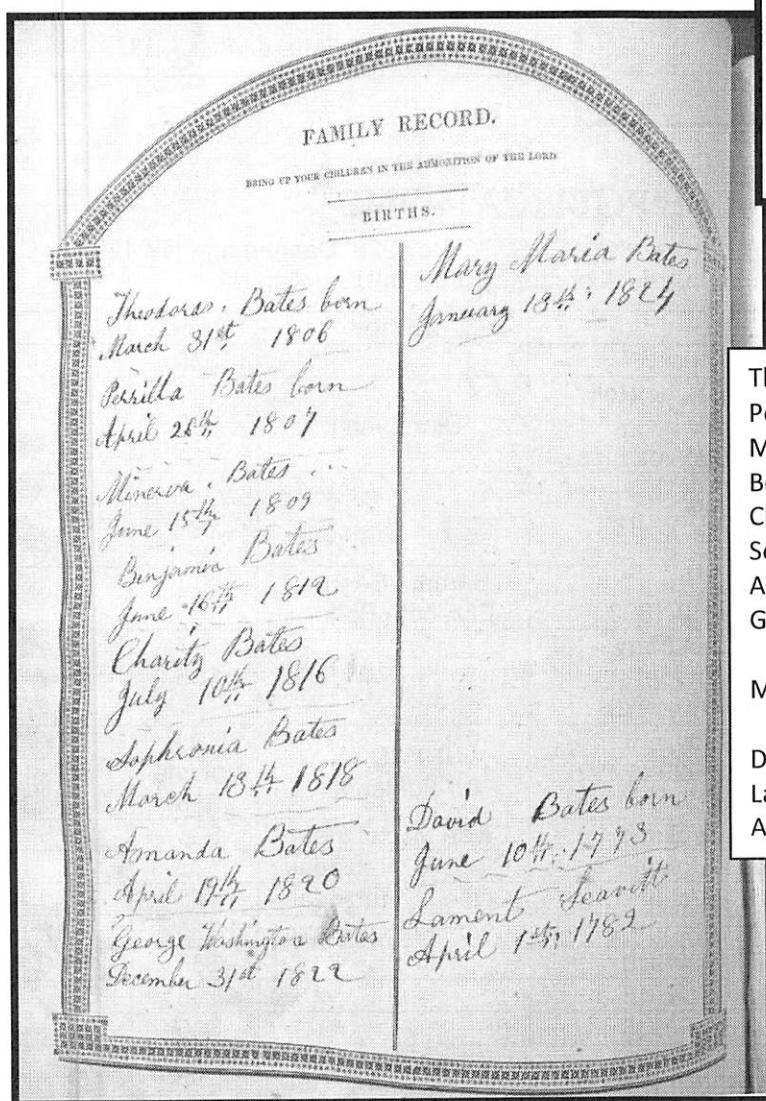 FAMILY RECORD.
BRING UP YOUR CHILDREN IN THE ADMONITION OF THE LORD
BIRTHS.
Theodoras. Bates born
March 31st 1806
Perrilla Bates born
April 28th 1807
Minerva. Bates ...
June 15th 1809
Benjamin Bates
June 16th 1812
Charity Bates
July 10th 1816
Sophronia Bates
March 13th 1818
Amanda Bates
April 19th 1820
George Washington Bates
December 31st 1822
Mary Maria Bates
January 13th 1824
David Bates born
June 10th 1773
Lament Leavitt
April 1st 1782
Th
Pe
M
Be
Ch
So
A
G
M
D
La
A